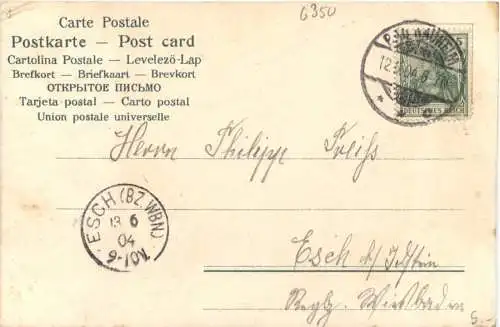 6350
Carte Postale
Postkarte — Post card
Cartolina Postale — Levelező-Lap
Brefkort — Briefkaart — Brevkort
ОТКРЫТОЕ ПИСЬМО
Tarjeta postal — Carto postal
Union postale universelle
BAD NAUHEIM
DEUTSCHES REICH
Herrn Philipp
ESCH (BZ. WBN)
13 6
04
6-7
Esch b/ Idstein
Regbz. Wiesbaden
5.-